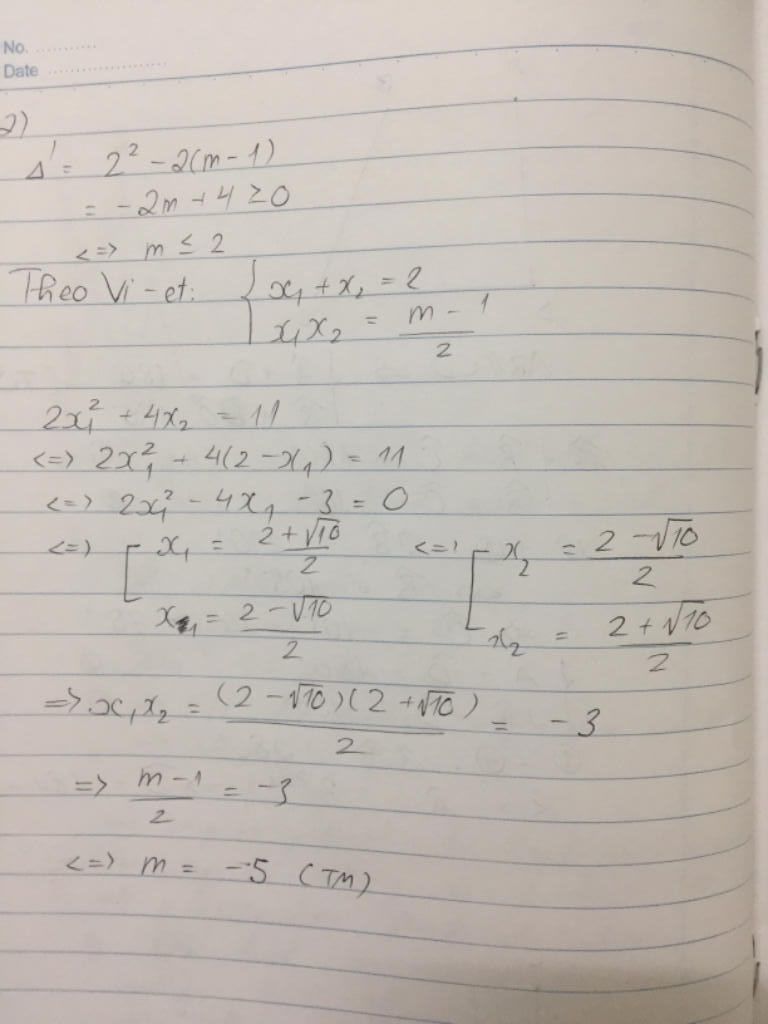 No. ............
Date ......................
2)
Δ' = 2² - 2(m - 1)
= -2m + 4 ≥ 0
<=> m ≤ 2
Theo Vi-et: { x₁ + x₂ = 2
x₁x₂ = (m - 1)/2
2x₁² + 4x₂ = 11
<=> 2x₁² + 4(2 - x₁) = 11
<=> 2x₁² - 4x₁ - 3 = 0
<=> [ x₁ = (2 + √10)/2 <=> [ x₂ = (2 - √10)/2
x₁ = (2 - √10)/2 x₂ = (2 + √10)/2
=> x₁x₂ = (2 - √10)(2 + √10)/2 = -3
=> (m - 1)/2 = -3
<=> m = -5 (TM)